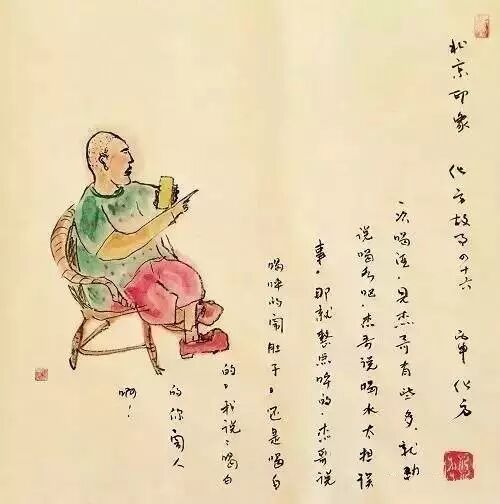 北京印象 化方故事四十六 丙申 化方
一次喝酒，见杰哥有些多，就劝
说喝水吧，杰哥说喝水太担误
事，那就整点啤的，杰哥说
喝啤的闹肚子，还是喝白
的，我说：喝白
的你闹人
啊！